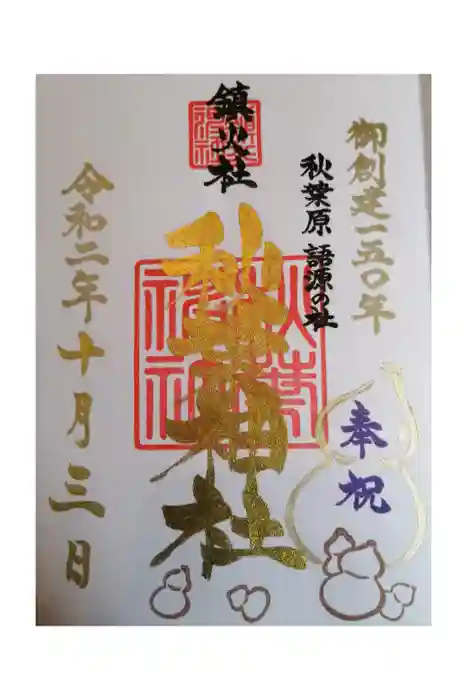 御創建一五〇年
奉祝
秋葉原 語源の社
鎮火社
秋葉神社
秋葉神社
令和二年十月三日